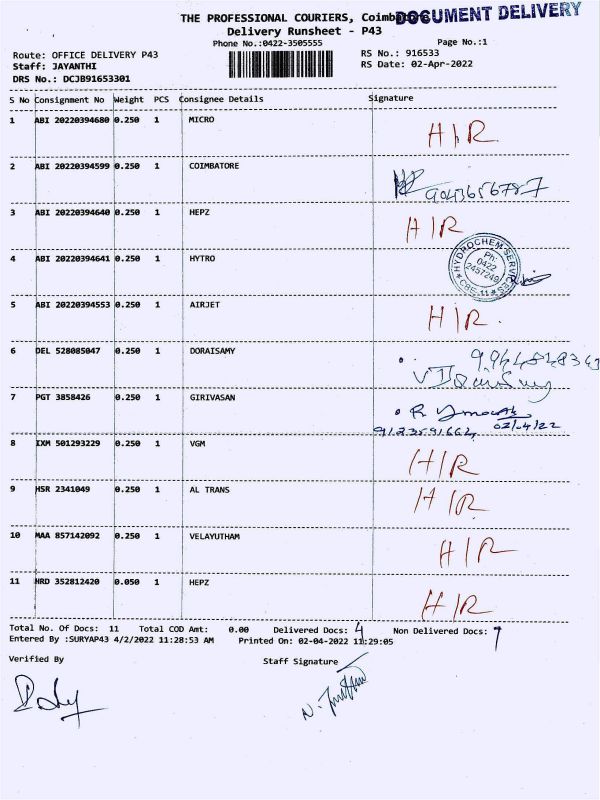 THE PROFESSIONAL COURIERS, Coimbatore
DOCUMENT DELIVERY
Delivery Runsheet - P43
Phone No.:0422-3505555
Page No.:1
Route: OFFICE DELIVERY P43
RS No.: 916533
Staff: JAYANTHI
RS Date: 02-Apr-2022
DRS No.: DCJB91653301
S No Consignment No Weight PCS Consignee Details Signature
1 ABI 20220394680 0.250 1 MICRO H/R
2 ABI 20220394599 0.250 1 COIMBATORE 9043656787
3 ABI 20220394640 0.250 1 HEPZ H/R
4 ABI 20220394641 0.250 1 HYTRO
HYDROCHEM SERVICES
Ph:
0422
2457249
CBE-11
5 ABI 20220394553 0.250 1 AIRJET H/R.
6 DEL 528085047 0.250 1 DORAISAMY
7 PGT 3858426 0.250 1 GIRIVASAN
9123591664 02/04/22
8 IXM 501293229 0.250 1 VGM H/R
9 HSR 2341049 0.250 1 AL TRANS H/R
10 MAA 857142092 0.250 1 VELAYUTHAM H/R
11 HRD 352812420 0.050 1 HEPZ H/R
Total No. Of Docs: 11 Total COD Amt: 0.00 Delivered Docs: 4 Non Delivered Docs: 7
Entered By :SURYAP43 4/2/2022 11:28:53 AM Printed On: 02-04-2022 11:29:05
Verified By Staff Signature